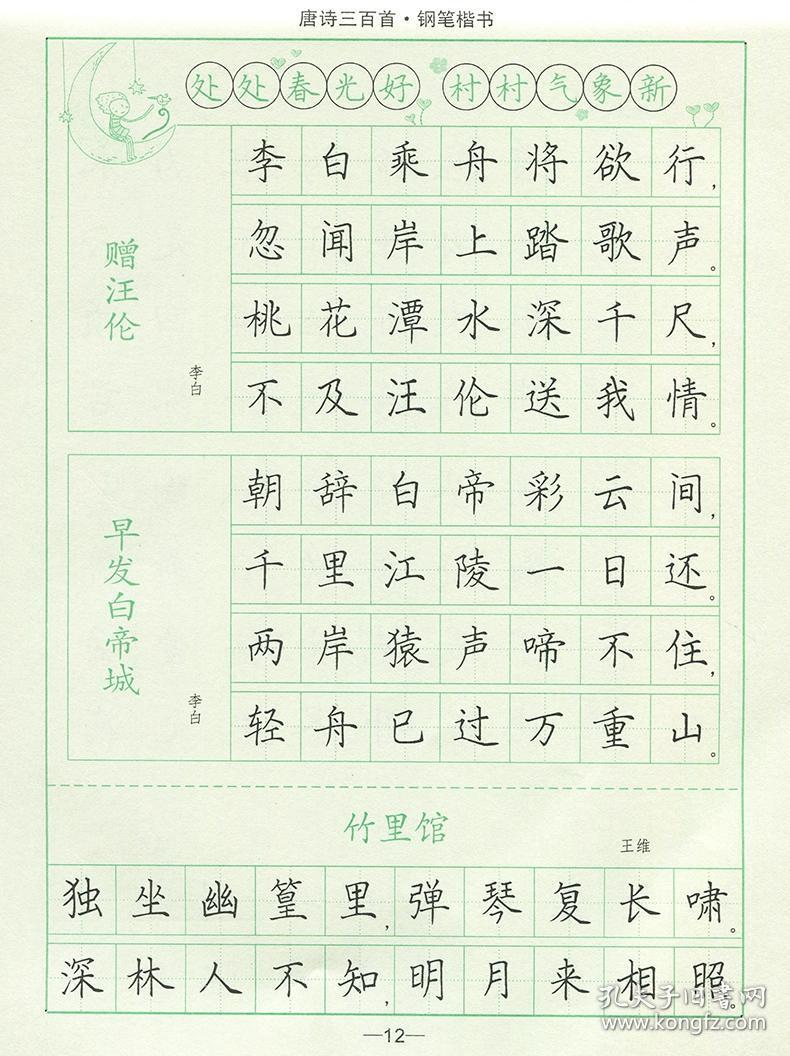 唐诗三百首·钢笔楷书
处处春光好 村村气象新
赠汪伦
李白
李白乘舟将欲行,
忽闻岸上踏歌声。
桃花潭水深千尺,
不及汪伦送我情。
早发白帝城
李白
朝辞白帝彩云间,
千里江陵一日还。
两岸猿声啼不住,
轻舟已过万重山。
竹里馆
王维
独坐幽篁里,弹琴复长啸。
深林人不知,明月来相照。
孔夫子旧书网
www.kongfz.com
—12—